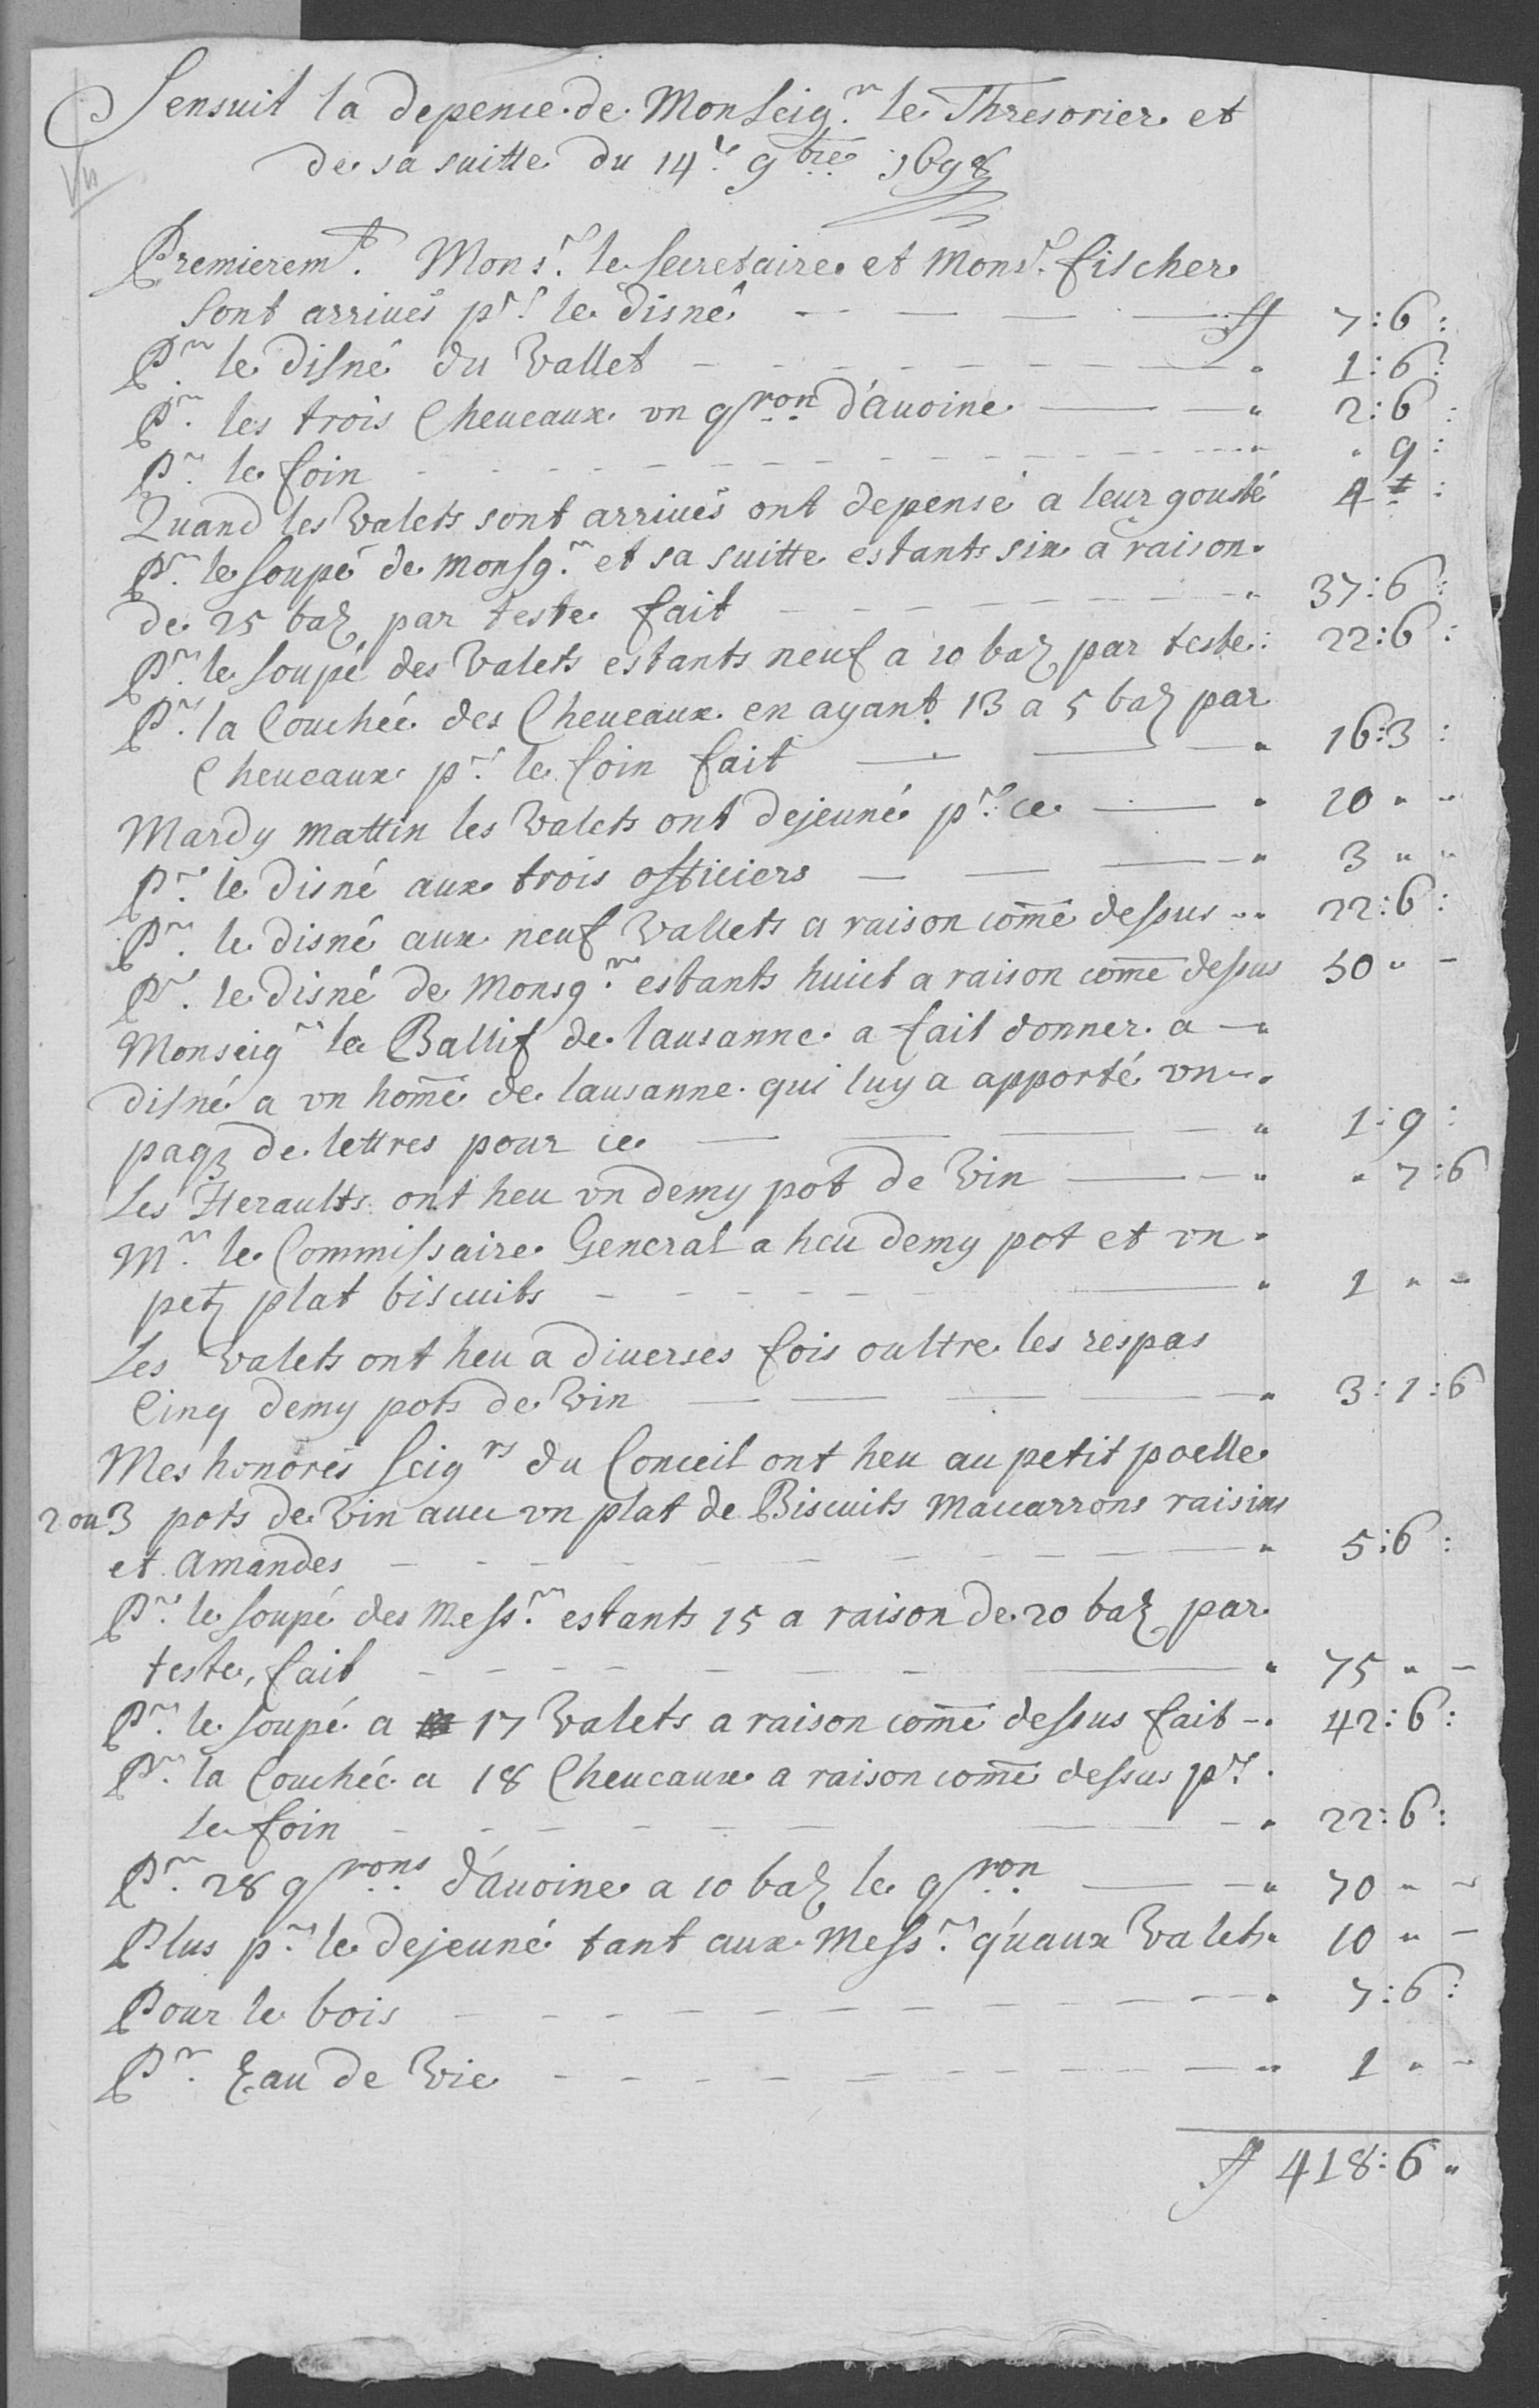 Sensuit la depence de Monseigr le Thresorier et
de sa suitte du 14e 9bre 1698
Vu
Premieremt. Monsr. le secretaire et Monsr. fischer
sont arriués pr. le disné ff 7:6:
Pr. le disné du vallet 1:6:
Pr. les trois cheueaux vn qron d'auoine 2:6:
Pr. le foin " 9:
Quand les valets sont arriués ont depensé a leur gousté 4:
Pr. le soupé de monsgr. et sa suitte estants six a raison
de 25 baz par teste fait 37:6:
Pr. le soupé des valets estants neuf a 10 baz par teste: 22:6:
Pr. la couchée des cheueaux en ayant 13 a 5 baz par
cheueaux pr. le foin fait 16:3:
Mardy mattin les valets ont dejeuné pr. ce 10 " "
Pr. le disné aux trois officiers 3 " "
Pr. le disné aux neuf vallets a raison come dessus 22:6:
Pr. le disné de Monsgr. estants huict a raison come dessus 50 " -
Monseigr le Ballif de lausanne a fait donner a
disné a vn home de lausanne qui luy a apporté vn
paqz de lettres pour ce 1:9:
Les Heraults ont heu vn demy pot de vin " 7:6
Mr. le Commissaire General a heu demy pot et vn
petz plat biscuits 1 " "
Les valets ont heu a diuerses fois oultre les respas
cinq demy pots de vin 3:1:6
Mes honorés seigrs du Conceil ont heu au petit poelle
2 ou 3 pots de vin auec vn plat de Biscuits maccarrons raisins
et amandes 5:6:
Pr. le soupé des Messr. estants 15 a raison de 20 baz par
teste, fait 75 " -
Pr. le soupé a 17 valets a raison come dessus fait 42:6:
Pr. la couchée a 18 cheueaux a raison come dessus pr.
le foin 22:6:
Pr. 28 qrons d'auoine a 10 baz le qron 70 " "
Plus pr. le dejeuné tant aux Messr. qu'aux valets 10 " -
Pour le bois 7:6:
Pr. Eau de vie 1 " -
ff 418:6 "